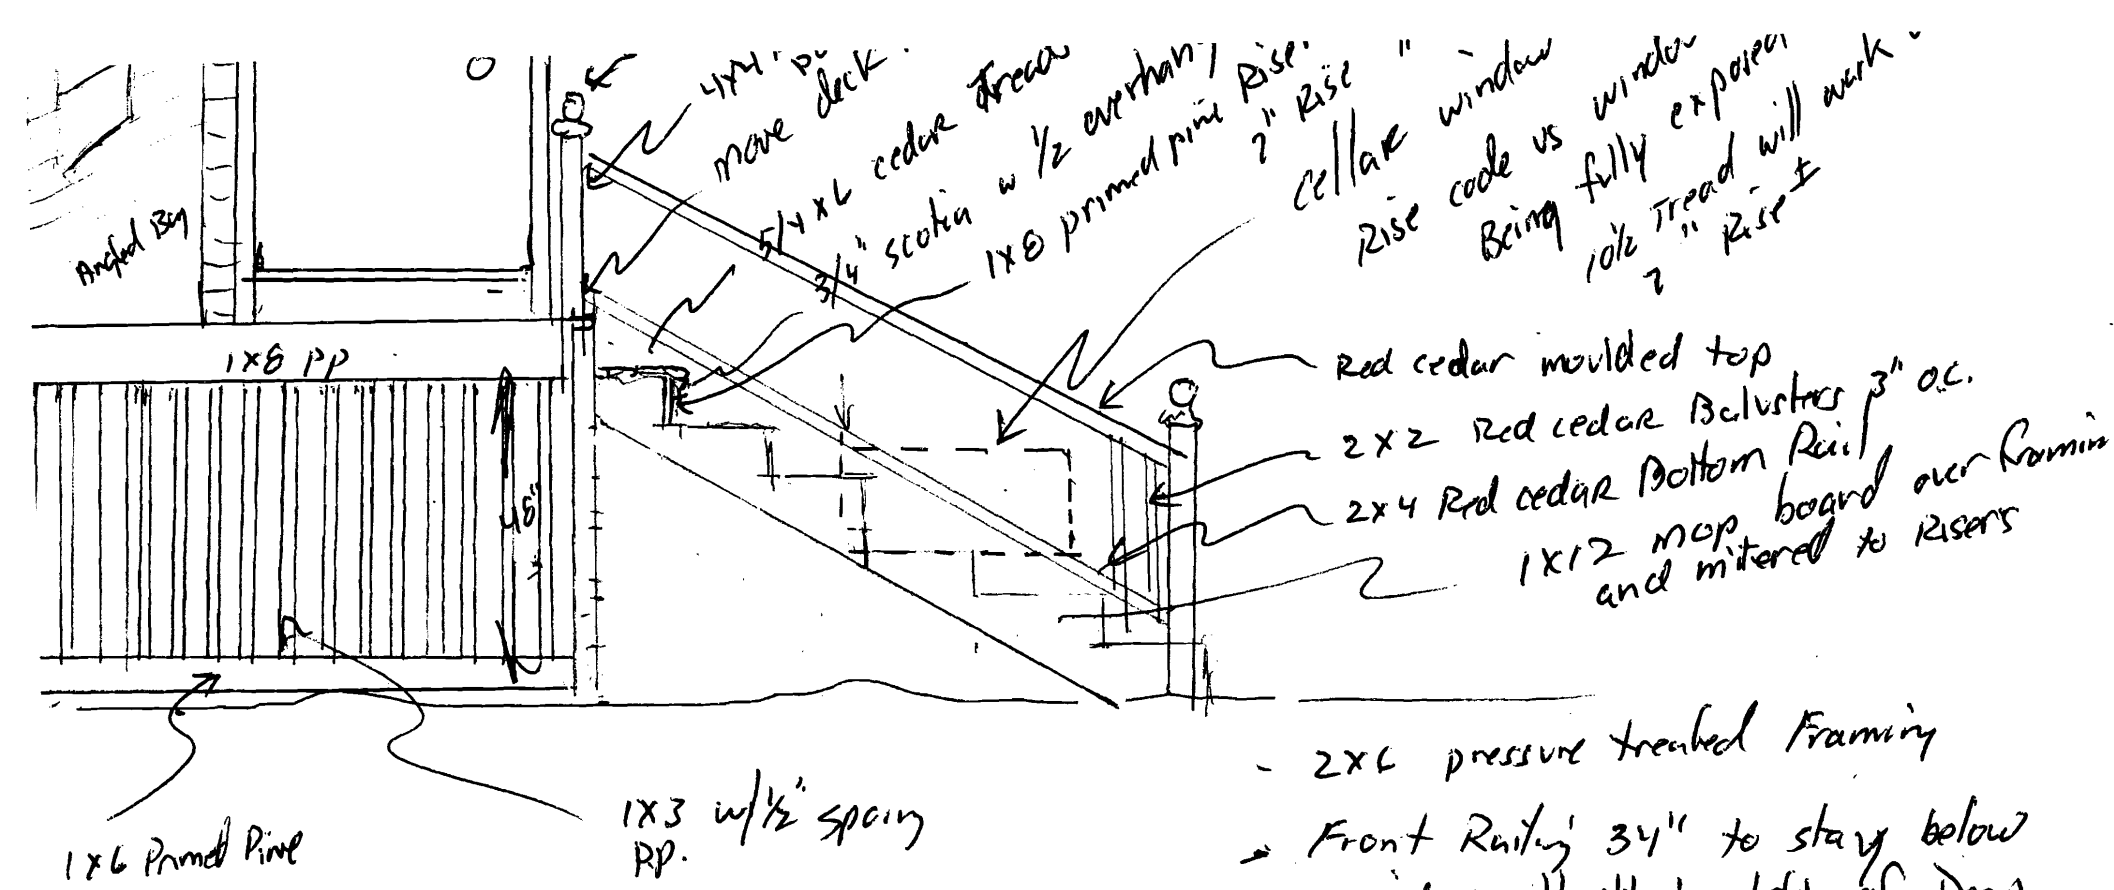 4x4"
move deck.
5/4 x 6 cedar Tread
3/4" scotia w 1/2 overhang
1x8 primed pine Rise.
?" Rise "
cellar window
Rise code vs window
Being fully exposed
10 1/2 Tread will work.
? " Rise ±
Angled Bay
1x8 PP
48"
Red cedar moulded top
2x2 Red cedar Balusters 3" O.C.
2x4 Red cedar Bottom Rail
1x12 mop board over framin
and mitered to Risers
1x6 Primed Pine
1x3 w/ 1/2" spacing
P.P.
- 2x6 pressure treated Framing
- Front Railing 34" to stay below